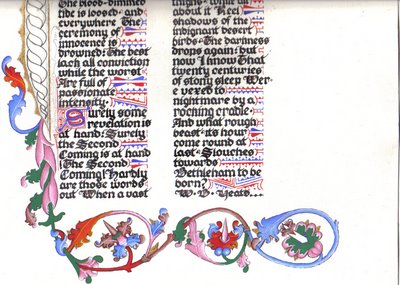 The blood-dimmed
tide is loosed and
everywhere The
ceremony of
innocence is
drowned The best
lack all conviction
while the worst
Are full of
passionate
intensity.
Surely some
revelation is
at hand: Surely
the Second
Coming is at hand
The Second
Coming! Hardly
are those words
out When a vast
thighs while all
about it Reel
shadows of the
indignant desert
birds. The darkness
drops again: but
now I know That
twenty centuries
of stony sleep Wer
e vexed to
nightmare by a
rocking cradle
And what rough
beast its hour
come round at
last Slouches
towards
Bethleham to be
born?
W. B. Yeats